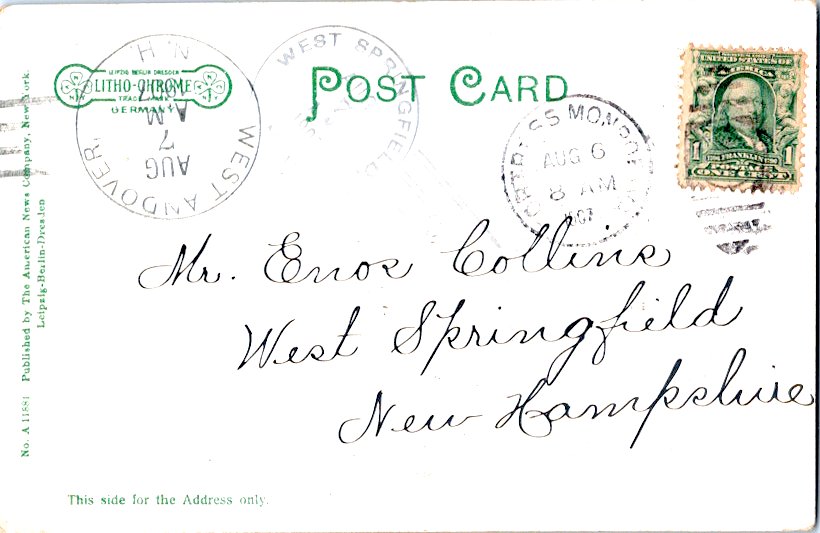 POST CARD
LEIPZIG BERLIN DRESDEN
LITHO-CHROME
TRADE MARK
GERMANY
WEST ANDOVER
N.H.
AUG
7
A.M
1907
WEST SPRINGFIELD
FORTRESS MONROE
AUG 6
8 AM
1907
UNITED STATES OF
AMERICA
FRANKLIN
1 1
POSTAGE
ONE CENT
Mr. Enos Collins
West Springfield
New Hampshire
No. A 11881 Published by The American News Company, New York.
Leipzig-Berlin-Dresden
This side for the Address only.